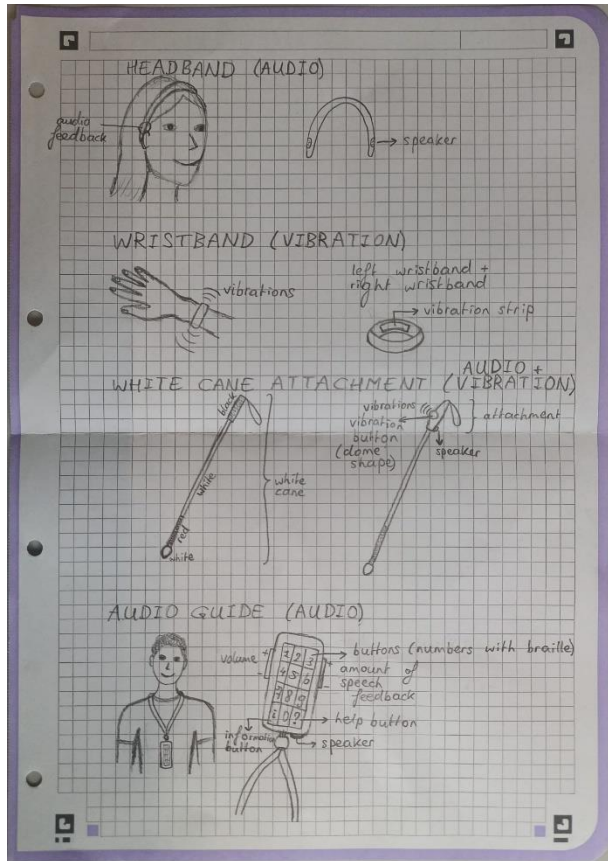 HEADBAND (AUDIO)
audio
feedback
speaker
WRISTBAND (VIBRATION)
vibrations
left wristband +
right wristband
vibration strip
WHITE CANE ATTACHMENT
AUDIO +
(VIBRATION)
black
white
red
white
white
cane
vibrations
vibration
button
(dome
shape)
attachment
speaker
AUDIO GUIDE (AUDIO)
volume
+
-
1 2 3
4 5 6
7 8 9
i 0 ?
buttons (numbers with braille)
+
-
amount of
speech
feedback
help button
information
button
speaker